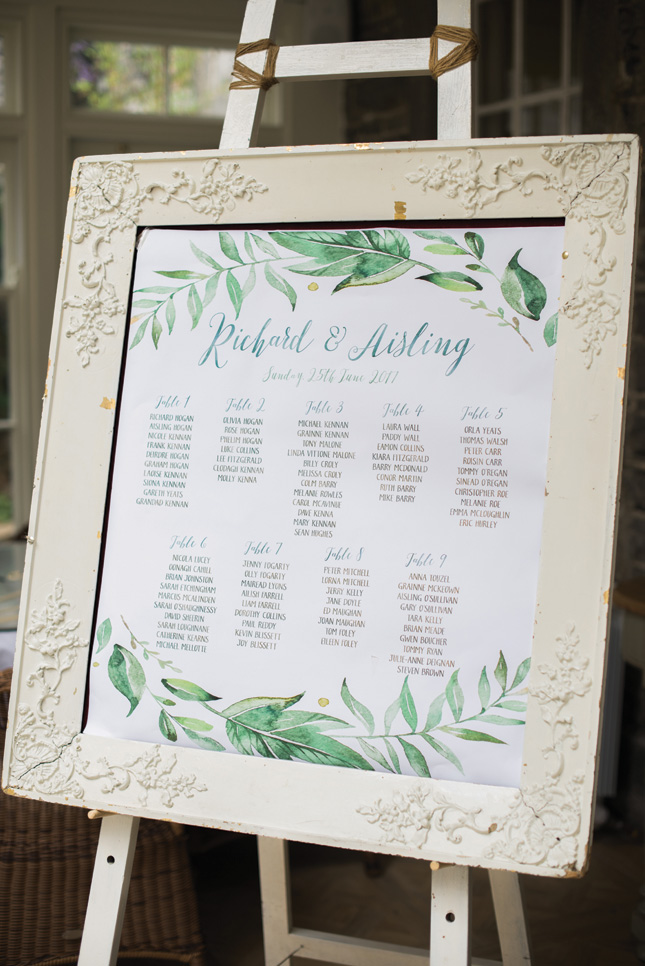 Richard & Aisling
Sunday, 25th June 2017
Table 1
RICHARD HOGAN
AISLING HOGAN
NICOLE KENNAN
FRANK KENNAN
DEIRDRE HOGAN
GRAHAM HOGAN
LAOISE KENNAN
SIONA KENNAN
GARETH YEATS
GRANDAD KENNAN
Table 2
OLIVIA HOGAN
ROSE HOGAN
PHELIM HOGAN
LUKE COLLINS
LEE FITZGERALD
CLODAGH KENNAN
MOLLY KENNA
Table 3
MICHAEL KENNAN
GRAINNE KENNAN
TONY MALONE
LINDA VITTONE MALONE
BILLY CROLY
MELISSA CROLY
COLM BARRY
MELANIE ROWLES
CAROLE MCAVINUE
DAVE KENNA
MARY KENNAN
SEAN HUGHES
Table 4
LAURA WALL
PADDY WALL
EAMON COLLINS
KIARA FITZGERALD
BARRY MCDONALD
CONOR MARTIN
RUTH BARRY
MIKE BARRY
Table 5
ORLA YEATS
THOMAS WALSH
PETER CARR
ROISIN CARR
TOMMY O'REGAN
SINEAD O'REGAN
CHRISTOPHER ROE
MELANIE ROE
EMMA MCLOUGHLIN
ERIC HURLEY
Table 6
NICOLA LUCEY
OONAGH CAHILL
BRIAN JOHNSTON
SARAH ETCHINGHAM
MARCUS MCALINDEN
SARAH O'SHAUGHNESSY
DAVID SHEERIN
SARAH LOUGHNANE
CATHERINE KEARNS
MICHAEL MELLOTTE
Table 7
JENNY FOGARTY
OLLY FOGARTY
MAIREAD LYONS
AILISH FARRELL
LIAM FARRELL
DOROTHY COLLINS
PAUL REDDY
KEVIN BLISSETT
JOY BLISSETT
Table 8
PETER MITCHELL
LORNA MITCHELL
JERRY KELLY
JANE DOYLE
ED MAUGHAN
JOAN MAUGHAN
TOM FOLEY
EILEEN FOLEY
Table 9
ANNA TOBZEL
GRAINNE MCKEOWN
AISLING O'SULLIVAN
GARY O'SULLIVAN
TARA KELLY
BRIAN MEADE
GWEN BOUCHER
TOMMY RYAN
JULIE-ANNE DEIGNAN
STEVEN BROWN